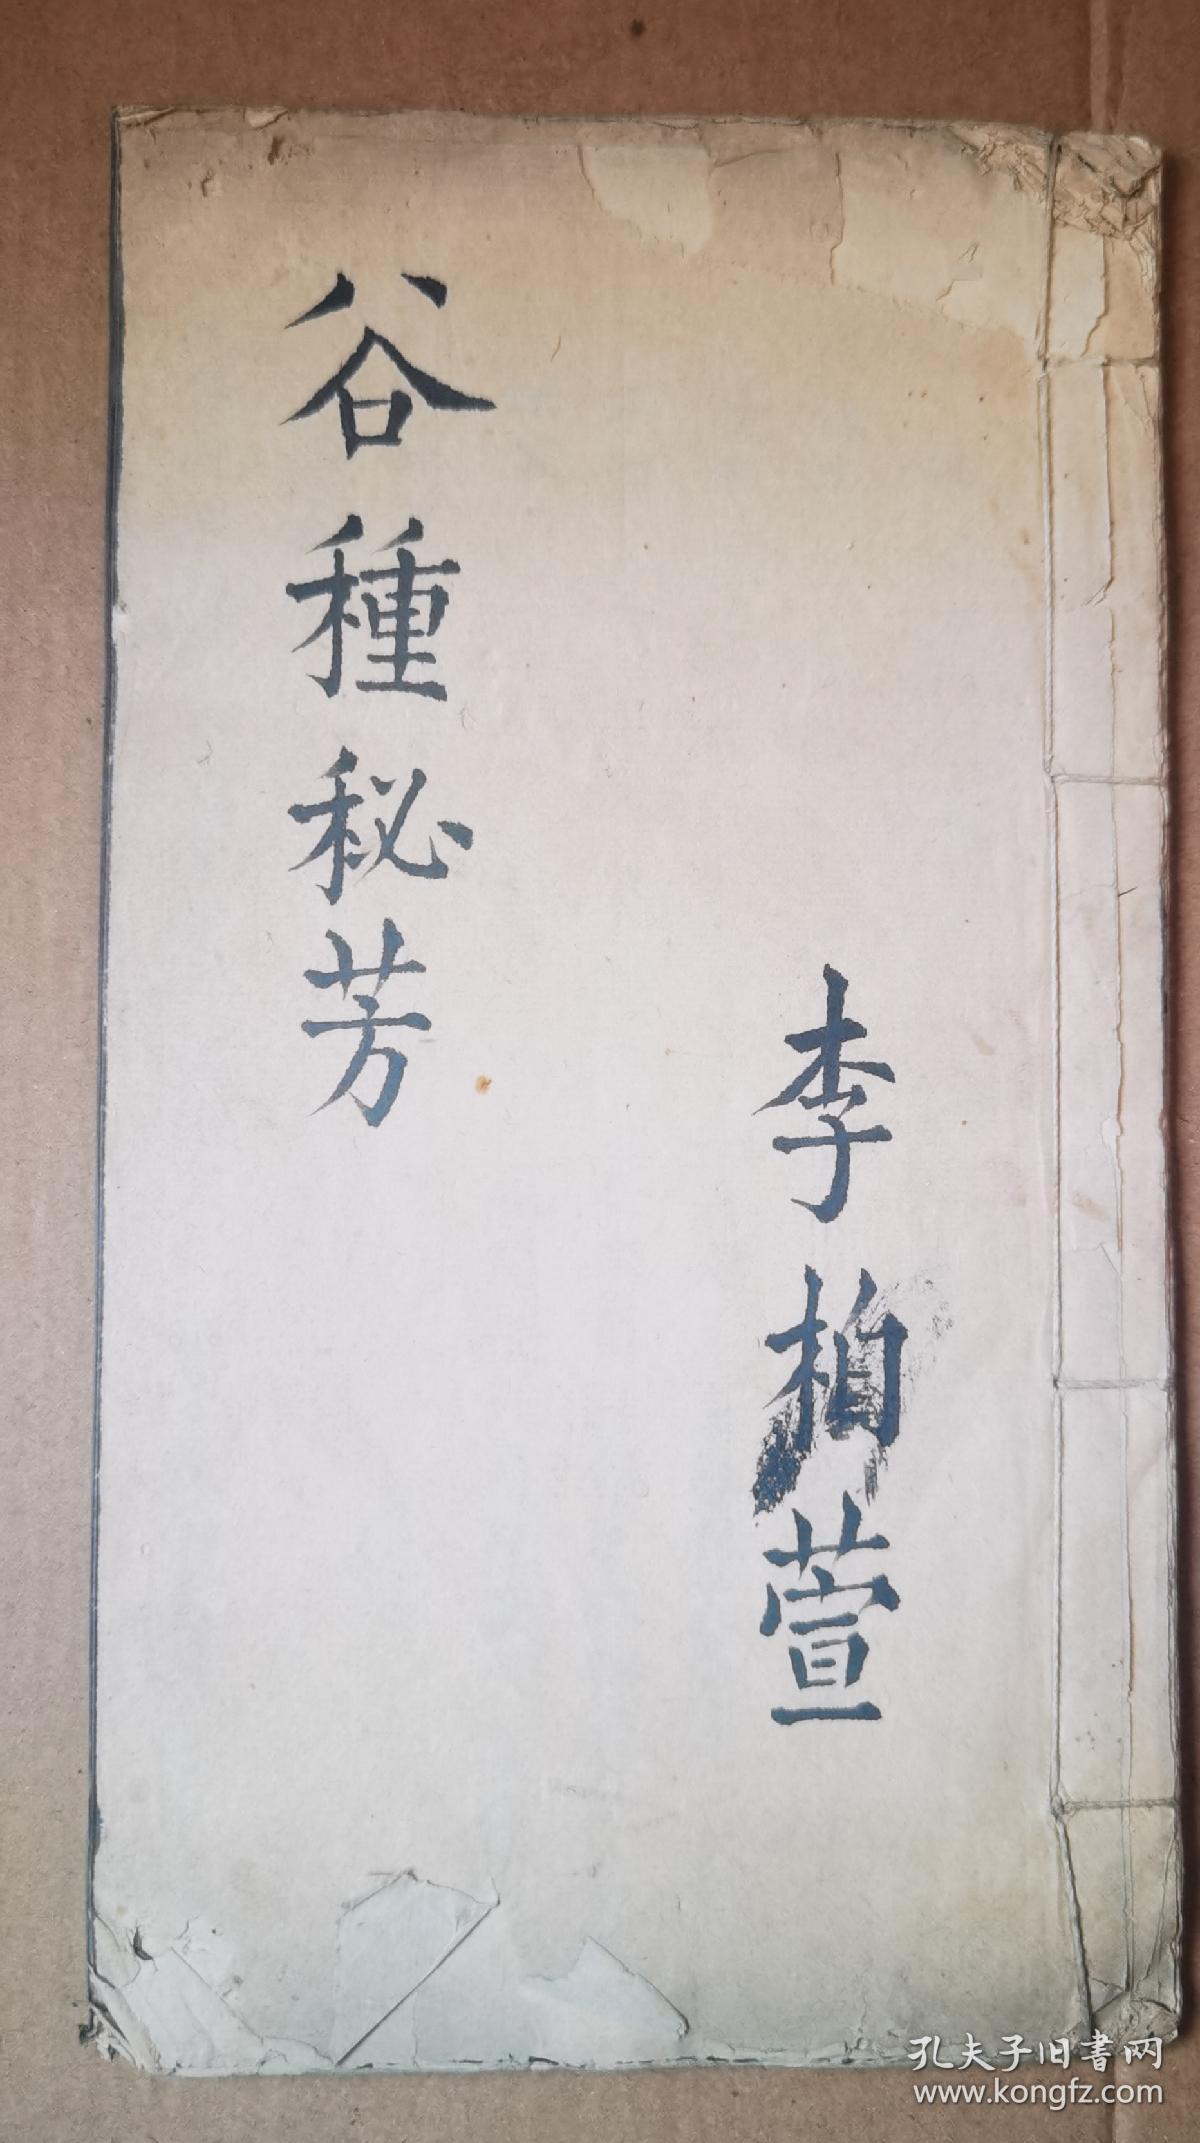 谷種秘芳
李柏萱
孔夫子旧書网
www.kongfz.com